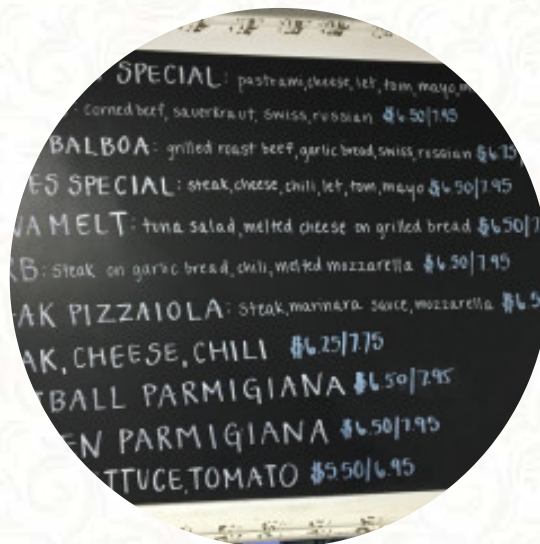 SPECIAL: pastrami, cheese, let, tom, mayo,
corned beef, sauerkraut, swiss, russian $6.50|7.95
BALBOA: grilled roast beef, garlic bread, swiss, russian $6.75
ES SPECIAL: steak, cheese, chili, let, tom, mayo $6.50|7.95
NA MELT: tuna salad, melted cheese on grilled bread $6.50|7
RB: Steak on garlic bread, chili, melted mozzarella $6.50|7.95
AK PIZZAIOLA: steak, marinara sauce, mozzarella $6.5
AK, CHEESE, CHILI $6.25|7.75
TBALL PARMIGIANA $6.50|7.95
EN PARMIGIANA $6.50|7.95
TTUCE, TOMATO $5.50|6.95